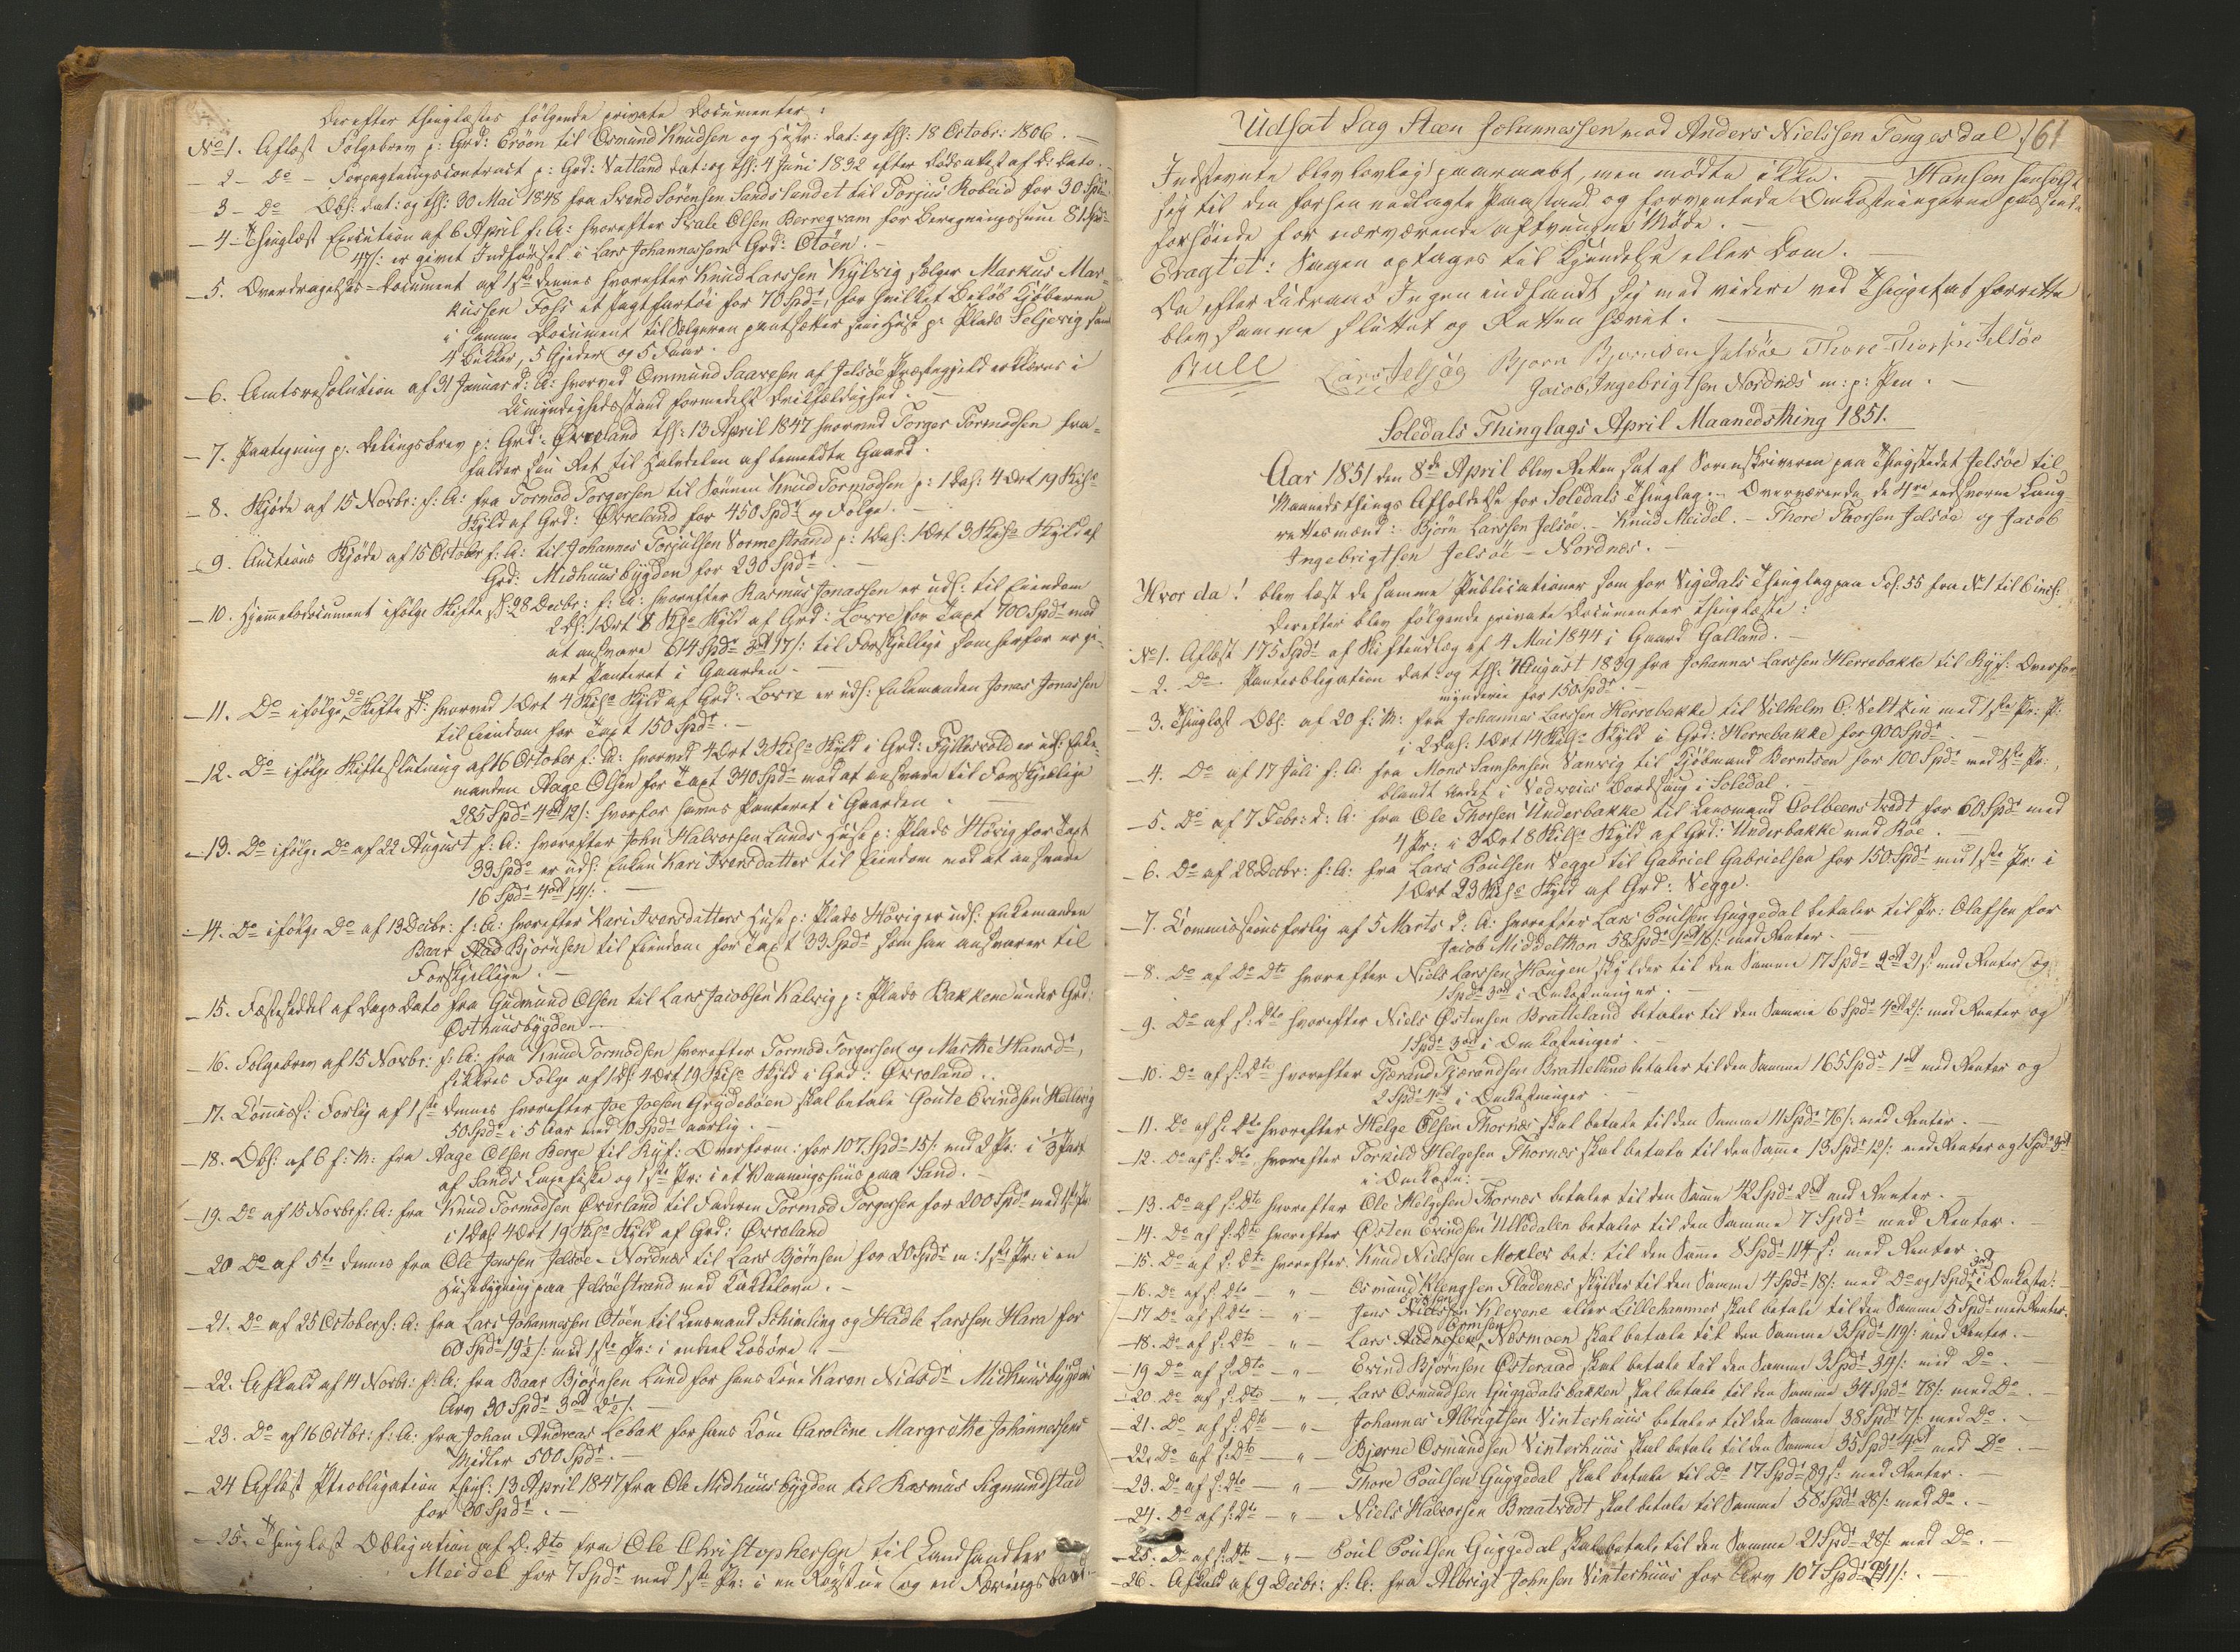 Derefter thinglæstes følgende private Documenter:
No 1. Aflæst Følgebrev p: Grd: Erøen til Osmund Knudsen og Hustr: dat: og thl: 18 Octobr: 1806. —
— 2 — Do — Forpagtningscontract p: Grd: Vatland dat: og thl: 4 Juni 1832 efter Dødsattest af D: Dato. —
3 — Do Obl: dat: og thl: 30 Mai 1848 fra Svend Sörensen Sandslandet til Torjus Roheid for 30 Spd.
— 4 — Thinglæst Execution af 6 April f: A: hvorefter Svale Olsen Berregvam for Beregningssum 81 Spd
47 s: er givet Indførsel i Lars Johannessens Grd: Otöen. —
— 5. Overdragelses-Document af 1ste dennes hvorefter Knud Larssen Kylvig sælger Markus Mar-
kussen Foss et Jagtfartöi for 70 Spd, for hvilket Beløb Kjøberen
i samme Document til Sælgeren pantsætter sine Huse p: Plads Seljevig samt
4 Bukker, 5 Gjeder og 5 Faar.
— 6. Amtsresolution af 31 Januar d: A: hvorved Ommund Saavesen af Jelsöe Præstegjeld erklæres i
Umyndighedsstand formedelst Drikfældighed. —
— 7. Paategning p: Delingsbrev p: Grd: Øvreland thl: 13 April 1847 hvorved Torger Tormodsen fra-
falder sin Ret til Halvdelen af bemeldte Gaard.
— 8. Skjøde af 15 Novbr: f: A: fra Tormod Torgersen til Sønnen Knud Tormodsen p: 1 Dal: 4 Ort 19 Skill
Skyld af Grd: Øvreland for 450 Spd og Folge. —
— 9. Auctions Skjøde af 15 October f: A: til Johannes Torjulsen Vormestrand p: 1 Dal: 1 Ort 3 Skill Skyld af
Grd: Midhuusbygden for 230 Spd. —
— 10. Hjemmelsdocument ifølge Skifte sl: 28 Decbr: f: A: hvorefter Rasmus Jonassen er udl: til Eiendom
2 Dl: 1 Ort 8 Skill Skyld af Grd: Lovre for Taxt 700 Spd mod
at ansvare 614 Spd 3 ort 17 s: til Forskjellige som herfor er gi-
vet Panteret i Gaarden. —
— 11. Do ifølge Do Skifte sl: hvorved 1 Ort 4 Skill Skyld af Grd: Lovre er udl: Enkemanden Jonas Jonassen
til Eiendom for Taxt 150 Spd. —
— 12. Do ifølge Skifteslutning af 16 October f: A: hvorved 4 Ort 3 Skill Skyld i Grd: Fyllesvold er udl: Enke-
manden Aage Olsen for Taxt 340 Spd mod at ansvare til Forskjellige
285 Spd 4 ort 12 s: hvorfor haves Panteret i Gaarden. —
— 13. Do ifølge Do af 22 August f: A: hvorefter John Halvorsen Lunds Huse p: Plads Hövig for Taxt
33 Spd er udl: Enken Kari Iversdatter til Eiendom mod at ansvare
16 Spd 4 ort 14 s: —
— 14. Do ifølge Do af 13 Decbr: f: A: hvorefter Kari Iversdatters Huse p: Plads Hövig er udl: Enkemanden
Baar Bjørnsen til Eiendom for Taxt 33 Spd som han ansvarer til
Forskjellige. —
— 15. Fæstesedel af Dags Dato fra Gudmund Olsen til Lars Jacobsen Kalvig p: Plads Bakkene under Grd:
Osthuusbygden —
— 16. Folgebrev af 15 Novbr: f: A: fra Knud Tormodsen hvorefter Tormod Torgersen og Marthe Hansd,
sikkres Folge af 1 Dl: 4 Ort 19 Skill Skyld i Grd: Øvreland. —
— 17. Commiss: Forlig af 1ste dennes hvorefter Joe Joesen Grydebøen skal betale Goute Evindsen Hellevig
50 Spd i 5 Aar med 10 Spd aarlig. —
— 18. Obl: af 6 f: M: fra Aage Olsen Berge til Ryf: Overform: for 107 Spd 15 s: med 2 Pr: i 1/3 Part
af Sands Laxefiske og 1ste Pr: i et Vaaningshuus paa Sand. —
— 19. Do af 15 Novbr f: A: fra Knud Tormodsen Øvreland til Faderen Tormod Torgersen for 200 Spd med 1ste Pr:
i 1 Dal: 4 Ort 19 Skill Skyld af Grd: Øvreland
— 20 Do af 5te dennes fra Ole Jonssen Jelsöe-Nordnæs til Lars Bjørnsen for 20 Spd m: 1ste Pr: i en
Huusebygning paa Jelsöestrand med Kakkelovn. —
— 21. Do af 25 October f: A: fra Lars Johannessen Otöen til Lensmand Schimling og Hadle Larssen Hara for
60 Spd 19½ s: med 1ste Pr: i endeel Løsøre. —
— 22. Afkald af 14 Novbr: f: A: fra Baar Bjørnsen Lund for hans Kone Karen Nielsd Midhuusbygdens
Arv 30 Spd 3 ort 2½ s. —
— 23. Do af 16 Octbr: f: A: fra Johan Andreas Lebak for hans Kone Caroline Margrethe Johannessens
Midler 500 Spd. —
— 24 Aflæst Pteobligation thinl: 13 April 1847 fra Ole Midhuusbygden til Rasmus Sigmundstad
for 30 Spd. —
— 25. Thinglæst Obligation af D: Dto fra Ole Christophersen til Landhandler
Meidel for 7 Spd med 1ste Pr: i en Røgstue og en Færingsbaad.
Udsat Sag Steen Johannessen mod Anders Nielssen Tengesdal 61
Indstevnte blev lovlig paaraabt, men mødte ikke. — Hansen henholdt
sig til den forhen nedlagte Paastand og forventede Omkostningerne passende
forhøiede for nærværende aftvungne Møde. —
Eragtet: Sagen optages til Kjendelse eller Dom. —
Da efter Udraab Ingen indfandt sig med videre ved Thinget at forrette
blev samme sluttet og Retten hævet. —
Bull Lars Jelsög Bjorn Bjornsen Jelsöe Thore Thorsen Jelsöe
Jacob Ingebrigtsen Nordnæs m: p: Pen. —
Soledals Thinglags April Maanedsthing 1851.
Aar 1851 den 8de April blev Retten sat af Sorenskriveren paa Thingstedet Jelsöe til
Maanedsthings Afholdelse for Soledals Thinglag. — Overværende de 4re eedsvorne Laug-
rettesmænd: Bjørn Larssen Jelsöe. — Knud Meidel. — Thore Thorsen Jelsöe og Jacob
Ingebrigtsen Jelsöe — Nordnæs. —
Hvor da! blev læst de samme Publicationer som for Vigedals Thinglag paa Fol: 55 fra No 1 til 6 incl:
Derefter blev følgende private Documenter thinglæste:
No 1. Aflæst 175 Spd af Skifteudlæg af 4 Mai 1844 i Gaard Galland. —
— 2. Do. Panteobligation dat: og thl: 7 August 1839 fra Johannes Larssen Herrebakke til Ryf: Overfor-
mynderie for 150 Spd. —
— 3. Thinglæst Obl: af 20 f: M: fra Johannes Larssen Herrebakke til Vilhelm C. Veltzin med 1ste Pr: p:
i 2 Dal: 1 Ort 14 Skill Skyld i Grd: Herrebakke for 900 Spd. —
— 4. Do af 17 Juli f: A: fra Mons Samsonsen Sanvig til Kjøbmand Berntsen for 100 Spd med 1ste Pr:,
blandt Andet i Vedveies Bordsaug i Soledal.
— 5. Do af 7 Febr: d: A: fra Ole Thorsen Underbakke til Lensmand Colbeenstvedt for 60 Spd med
4 Pr: i 3 Ort 8 Skill Skyld af Grd: Underbakke med Roe. —
— 6. Do af 28 Decbr: f: A: fra Lars Poulsen Vegge til Gabriel Gabrielsen for 150 Spd med 1ste Pr: i
1 Ort 23 Skill Skyld af Grd: Vegge.
— 7. Commissionsforlig af 5 Marts d: A: hvorefter Lars Poulsen Guggedal betaler til Pr: Olafsen for
Jacob Middelthon 58 Spd 1 ort 16 s: med Renter. —
— 8. Do af Do Dto hvorefter Niels Larssen Hougen skylder til den Samme 17 Spd 2 ort 21 s: med Renter og
1 Spd 3 ort i Omkostninger. —
— 9. Do af s: Dto hvorefter Niels Østensen Bratteland betaler til den Samme 6 Spd 4 ort 2 s: med Renter og
1 Spd 3 ort i Omkostninger. —
— 10. Do af s: Dto hvorefter Tjærand Tjærandsen Bratteland betaler til den Samme 165 Spd 1 ort med Renter og
2 Spd 4 ort i Omkostninger —
— 11. Do af s: Dto hvorefter Helge Olsen Thornæs skal betale til den Samme 11 Spd 76 s: med Renter. —
— 12. Do af s: Dto hvorefter Torkild Helgesen Thornæs skal betale til den Samme 13 Spd 12 s: med Renter og 1 Spd 3 ort
i Omkostn: —
— 13. Do af s: Dto hvorefter Ole Helgesen Thornæs betaler til den Samme 42 Spd 2 ort med Renter. —
— 14. Do af s: Dto hvorefter Østen Evindsen Ulledalen betaler til den Samme 7 Spd med Renter. —
— 15. Do af s: Dto hvorefter Knud Nielssen Mokleiv bet: til den Samme 8 Spd 114 s: med Renter. —
— 16. Do af s: Dto — " — Osmund Klengsen Fladenæs skylder til den Samme 4 Spd 18 s: med Do og 1 Spd 3 ort i Omkostn: —
— 17 Do af s: Dto — " — Jens Klevene eller Lillehammer skal betale til den Samme 5 Spd med Renter.
— 18. Do af s: Dto — " — Lars Ormsen Næsmoen skal betale til den Samme 3 Spd 119 s: med Renter. —
— 19 Do af s: Dto — " — Evind Bjørnsen Østeraad skal betale til den Samme 3 Spd 34 s: med Do. —
— 20. Do af s: Dto " — Lars Osmundsen Guggedalsbakken skal betale til den Samme 34 Spd 78 s: med Do. —
— 21. Do af s: Dto — " — Johannes Albrigtsen Vinterhuus betaler til den Samme 38 Spd 7 s: med Do. —
— 22. Do af s: Dto — " — Bjerne Osmundsen Vinterhuus skal betale til den Samme 35 Spd 4 ort med Do. —
— 23. Do af s: Dto — " — Thore Poulsen Guggedal skal betale til Do 17 Spd 89 s: med Renter. —
— 24. Do af s: Dto — " — Niels Halvorsen Braatvedt skal betale til Samme 58 Spd 28 s: med Do. —
— 25. Do af s: Dto — " — Poul Poulsen Guggedal skal betale til den Samme 21 Spd 28 s: med Do. —
— 26. Afkald af 9 Decbr: f: A: fra Albrigt Johnsen Vinterhuus for Arv 107 Spd